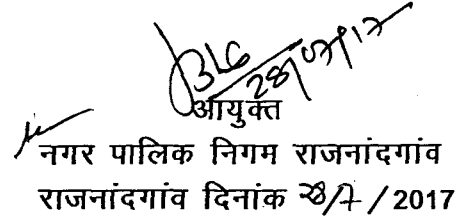 28/07/17
आयुक्त
नगर पालिक निगम राजनांदगांव
राजनांदगांव दिनांक 28/7/2017